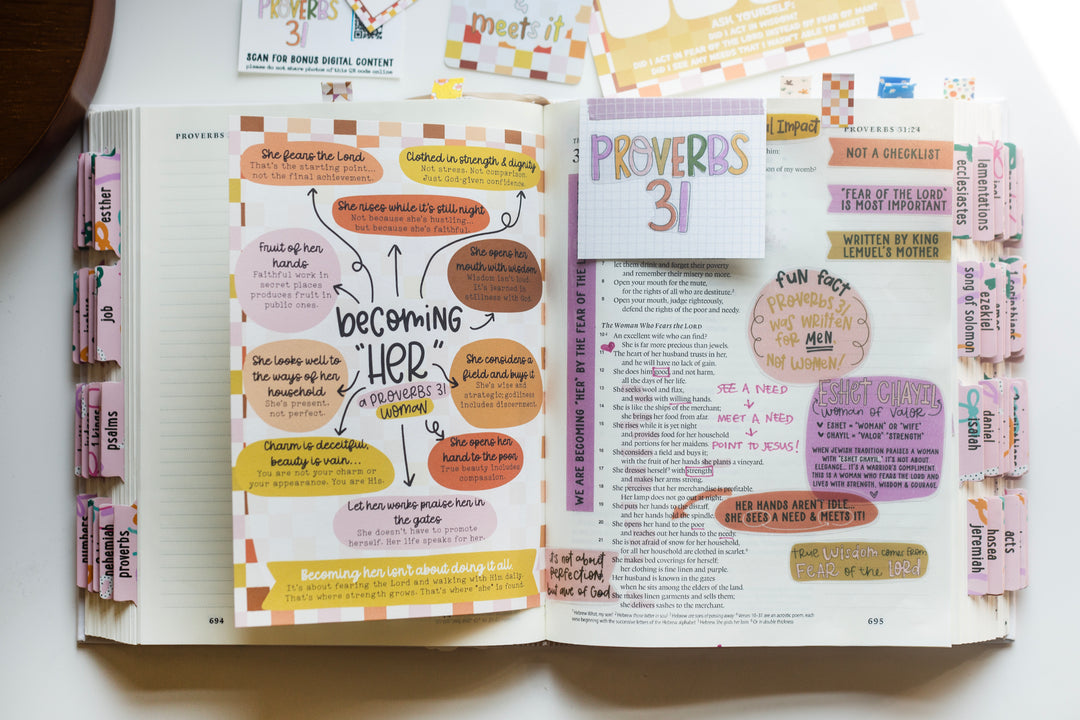 PROVERBS
31
SCAN FOR BONUS DIGITAL CONTENT
please do not share photos of this QR code online
&
meets it
ASK YOURSELF:
DID I ACT IN WISDOM?
DID I ACT IN FEAR OF THE LORD INSTEAD OF FEAR OF MAN?
DID I SEE ANY NEEDS THAT I WASN'T ABLE TO MEET?
esther
job
psalms
1 kings
numbers
nehemiah
proverbs
PROVERBS
She fears the Lord
That's the starting point...
not the final achievement.
Clothed in strength & dignity
Not stress. Not comparison.
Just God-given confidence.
She rises while it's still night
Not because she's hustling...
but because she's faithful.
Fruit of her
hands
Faithful work in
secret places
produces fruit in
public ones.
She opens her
mouth with wisdom
Wisdom isn't loud.
It's learned in
stillness with God.
becoming
"HER"
a PROVERBS 31
woman
She looks well to
the ways of her
household
She's present,
not perfect.
She considers a
field and buys it
She's wise and
strategic; godliness
includes discernment.
Charm is deceitful,
beauty is vain...
You are not your charm or
your appearance. You are His.
She opens her
hand to the poor
True beauty includes
compassion.
Let her works praise her in
the gates
She doesn't have to promote
herself. Her life speaks for her.
Becoming her isn't about doing it all
It's about fearing the Lord and walking with Him daily.
That's where strength grows. That's where "she" is found.
694
WE ARE BECOMING "HER" BY THE FEAR OF THE
PROVERBS
31
l Impact
PROVERBS 31:24
NOT A CHECKLIST
"FEAR OF THE LORD"
IS MOST IMPORTANT
WRITTEN BY KING
LEMUEL'S MOTHER
him:
on of my womb?
7 let them drink and forget their poverty
and remember their misery no more.
8 Open your mouth for the mute,
for the rights of all who are destitute.
9 Open your mouth, judge righteously,
defend the rights of the poor and needy.
The Woman Who Fears the LORD
10 An excellent wife who can find?
She is far more precious than jewels.
11 The heart of her husband trusts in her,
and he will have no lack of gain.
12 She does him good, and not harm,
all the days of her life.
13 She seeks wool and flax,
and works with willing hands.
14 She is like the ships of the merchant;
she brings her food from afar.
15 She rises while it is yet night
and provides food for her household
and portions for her maidens.
16 She considers a field and buys it;
with the fruit of her hands she plants a vineyard.
17 She dresses herself with strength
and makes her arms strong.
18 She perceives that her merchandise is profitable.
Her lamp does not go out at night.
19 She puts her hands to the distaff,
and her hands hold the spindle.
20 She opens her hand to the poor
and reaches out her hands to the needy.
21 She is not afraid of snow for her household,
for all her household are clothed in scarlet.
She makes bed coverings for herself;
her clothing is fine linen and purple.
Her husband is known in the gates
when he sits among the elders of the land.
She makes linen garments and sells them;
she delivers sashes to the merchant.
fun fact
PROVERBS 31
was WRITTEN
FOR MEN,
NOT WOMEN!
SEE A NEED
MEET A NEED
POINT TO JESUS!
ESHET CHAYIL
woman of valor
ESHET = "WOMAN" OR "WIFE"
CHAYIL = "VALOR" "STRENGTH"
WHEN JEWISH TRADITION PRAISES A WOMAN
WITH "ESHET CHAYIL", IT'S NOT ABOUT
ELEGANCE... IT'S A WARRIOR'S COMPLIMENT.
THIS IS A WOMAN WHO FEARS THE LORD AND
LIVES WITH STRENGTH, WISDOM & COURAGE
HER HANDS AREN'T IDLE...
SHE SEES A NEED & MEETS IT!
true wisdom comes from
FEAR of the LORD
it's not about
perfection,
but awe of God
695
ecclesiastes
lamentations
song of solomon
ezekiel
amos
isaiah
daniel
jeremiah
hosea
acts